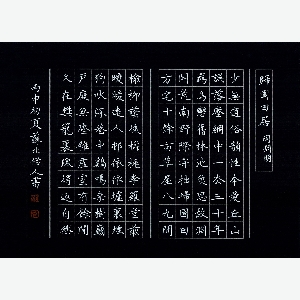 歸園田居 陶淵明
少無適俗韻性本愛丘山
誤落塵網中一去三十年
羈鳥戀舊林池魚思故淵
開荒南野際守拙歸園田
方宅十餘畝草屋八九間
榆柳蔭後檐桃李羅堂前
曖曖遠人村依依墟里煙
狗吠深巷中雞鳴桑樹顛
戶庭無塵雜虛室有餘閒
久在樊籠裏復得返自然
丙申初夏 人書